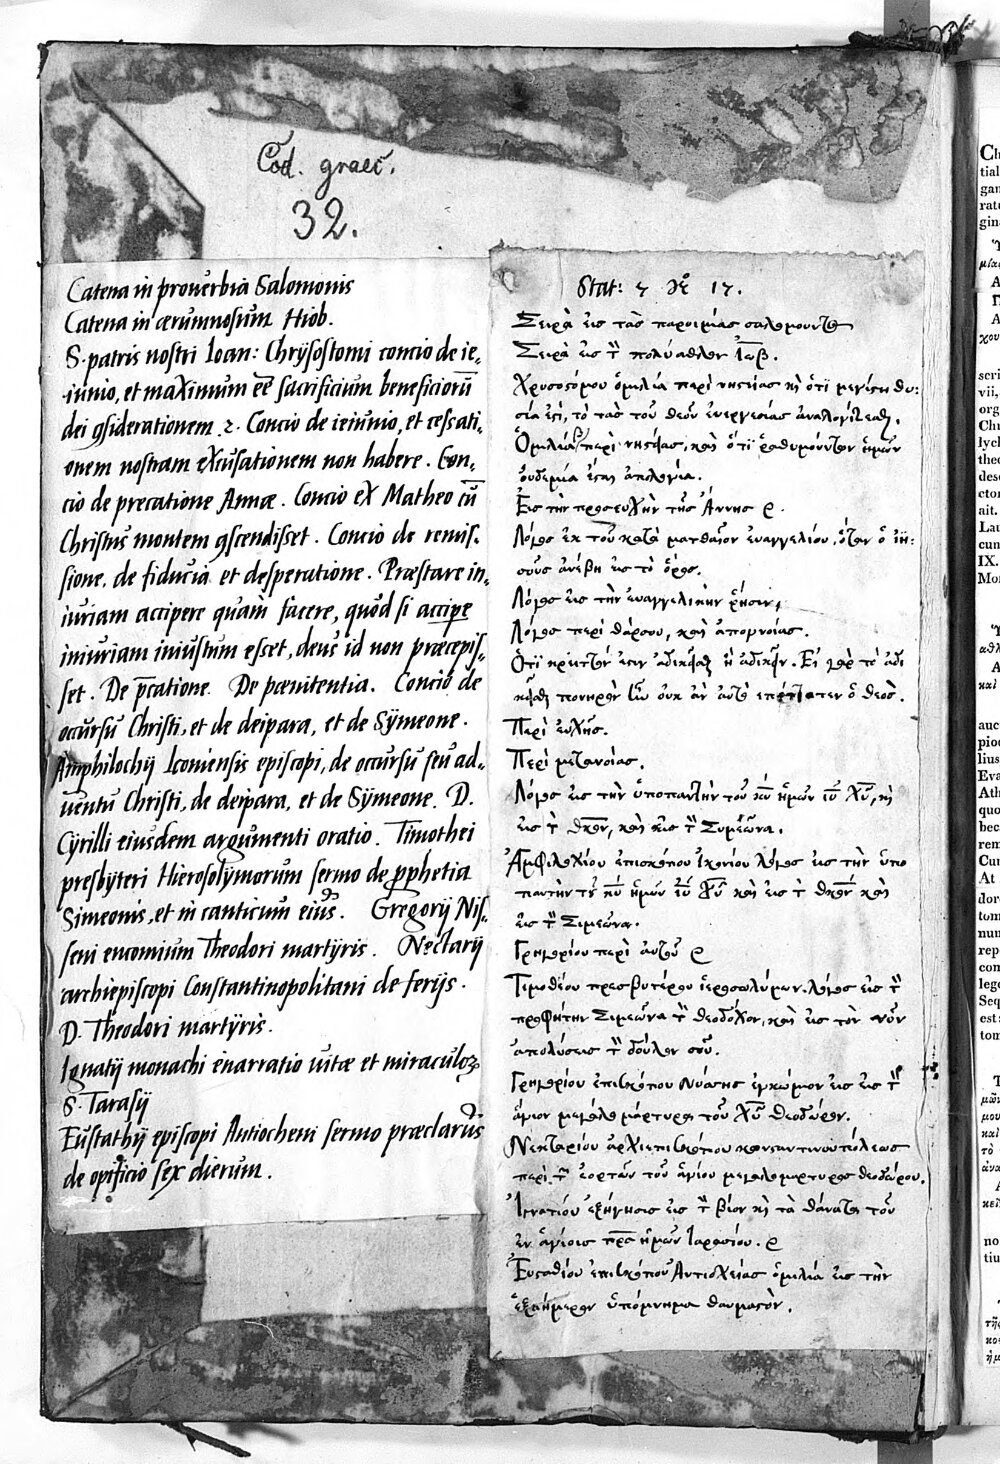 Cod. graec.
32.
Catena in prouerbia Salomonis
Catena in ærumnosum Hiob.
S. patris nostri Ioan: Chrÿsostomi concio de ie-
iunio, et maximum eē sacrificium beneficiorū
dei gsiderationem .2. Concio de ieiunio, et cessati-
onem nostram excusationem non habere. Con-
cio de precatione Annæ. Concio ex Matheo cū
Christus montem gscendisset. Concio de remis-
sione, de fiducia et desperatione. Præstare in-
iuriam accipere quàm facere, quòd si accipe
iniuriam iniustum esset, deus id non præcepis-
set. De p̄catione. De pœnitentia. Concio de
occursu Christi, et de deipara, et de Sÿmeone.
Amphilochij Iconiensis episcopi, de occursu seu ad-
uentu Christi, de deipara, et de Sÿmeone. D.
Cyrilli eiusdem argumenti oratio. Timothei
presbÿteri Hierosolÿmorum sermo de pphetia
Simeonis, et in canticum eius. Gregorij Nis-
seni encomium Theodori martÿris. Nectarij
archiepiscopi Constantinopolitani de ferijs.
D. Theodori martÿris.
Ignatij monachi enarratio uitæ et miraculoꝝ
S. Tarasij
Eustathij episcopi Antiocheni sermo præclarus
de opificio sex dierum.
Stat: 17.
Σειρὰ εἰς τὰσ παροιμίας σαλομουντος
Σειρὰ εἰς τ̄ πολύαθλον Ἰωβ.
Χρυσοστόμου ὁμιλία περὶ νηστείας κὴ ὅτι μεγίστη θυ:
σία ἐστὶ, τὸ τὰσ τοῦ θεοῦ ἐνεργεσίας ἀναλογίζεσθαι.
Ὁμιλία περὶ νηστείας, καὶ ὅτι ῥαθυμούντων ἡμῶν
οὐδεμία ἔσται ἀπολογία.
Εἰς τὴν προσευχὴν τῆς Ἄννης
Λόγος ἐκ τοῦ κατὰ ματθαῖον εὐαγγελίου, ὅταν ὁ ἰη:
σοῦς ἀνέβη εἰς τὸ ὄρος.
Λόγος εἰς τὴν εὐαγγελικὴν ῥῆσιν,
Λόγος περὶ θάρσου, καὶ ἀπονοίας.
Ὅτι κρεῖττόν ἐστιν ἀδικεῖσθαι ἢ ἀδικεῖν. Εἰ γὰρ τὸ ἀδι
κεῖσθαι πονηρὸν ἦν οὐκ ἂν αὐτὸ ἐπέταττεν ὁ θεὸς.
Περὶ εὐχῆς.
Περὶ μετανοίας.
Λόγος εἰς τὴν ὑποπαντὴν τοῦ κῦ ἡμῶν ιῦ χῦ, κὴ
εἰς τ̄ θκον, καὶ εἰς τ̄ Συμεῶνα.
Ἀμφιλοχίου ἐπισκόπου Ἰκονίου λόγος εἰς τὴν ὑπο
παντὴν τοῦ κῦ ἡμῶν ιῦ χῦ καὶ εἰς τ̄ θκον καὶ
εἰς τ̄ Σιμεῶνα.
Γρηγορίου περὶ αὐτοῦ
Τιμοθέου πρεσβυτέρου ἱεροσολύμων. λόγος εἰς τ̄
προφήτην Σιμεῶνα τ̄ θεοδόχον, καὶ εἰς τὸν νῦν
ἀπολύσεις τ̄ δοῦλον σοῦ.
Γρηγορίου ἐπισκόπου Νύσσης ἐγκώμιον εἰς εἰς τ̄
ἅγιον μεγαλομάρτυρα τοῦ χῦ θεοδώρον.
Νεκταρίου ἀρχιεπισκόπου κωνσταντινουπόλεως
περὶ τ̄ ἑορτῶν τοῦ ἁγίου μεγαλομάρτυρος θεοδώρου.
Ἰγνατίου ἐξήγησις εἰς τ̄ βίον κὴ τὰ θαύματα τοῦ
ἐν ἁγίοις πρς ἡμῶν Ταρασίου.
Εὐσταθίου ἐπισκόπου Ἀντιοχείας ὁμιλία εἰς τὴν
ἑξαήμερον ὑπόμνημα θαυμαστὸν.